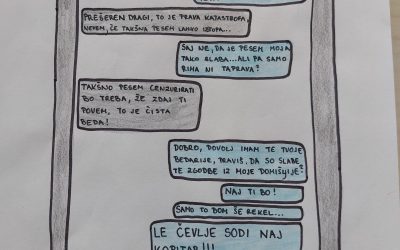 PREŠEREN DRAGI, TO JE PRAVA KATASTROFA,
NEVEM, ČE TAKŠNA PESEM LAHKO IZTOPA...
SAJ NE, DA JE PESEM MOJA
TAKO SLABA... ALI PA SAMO
RIMA NI TAPRAVA?
TAKŠNO PESEM CENZURIRATI
BO TREBA, ŽE ZDAJ TI
POVEM, TO JE ČISTA
BEDA!
DOBRO, DOVOLJ IMAM TE TVOJE
BEDARIJE, PRAVIŠ, DA SO SLABE
TE ZGODBE IZ MOJE DOMIŠLJIJE?
NAJ TI BO!
SAMO TO BOM ŠE REKEL...
LE ČEVLJE SODI NAJ
KOPITAR!!!